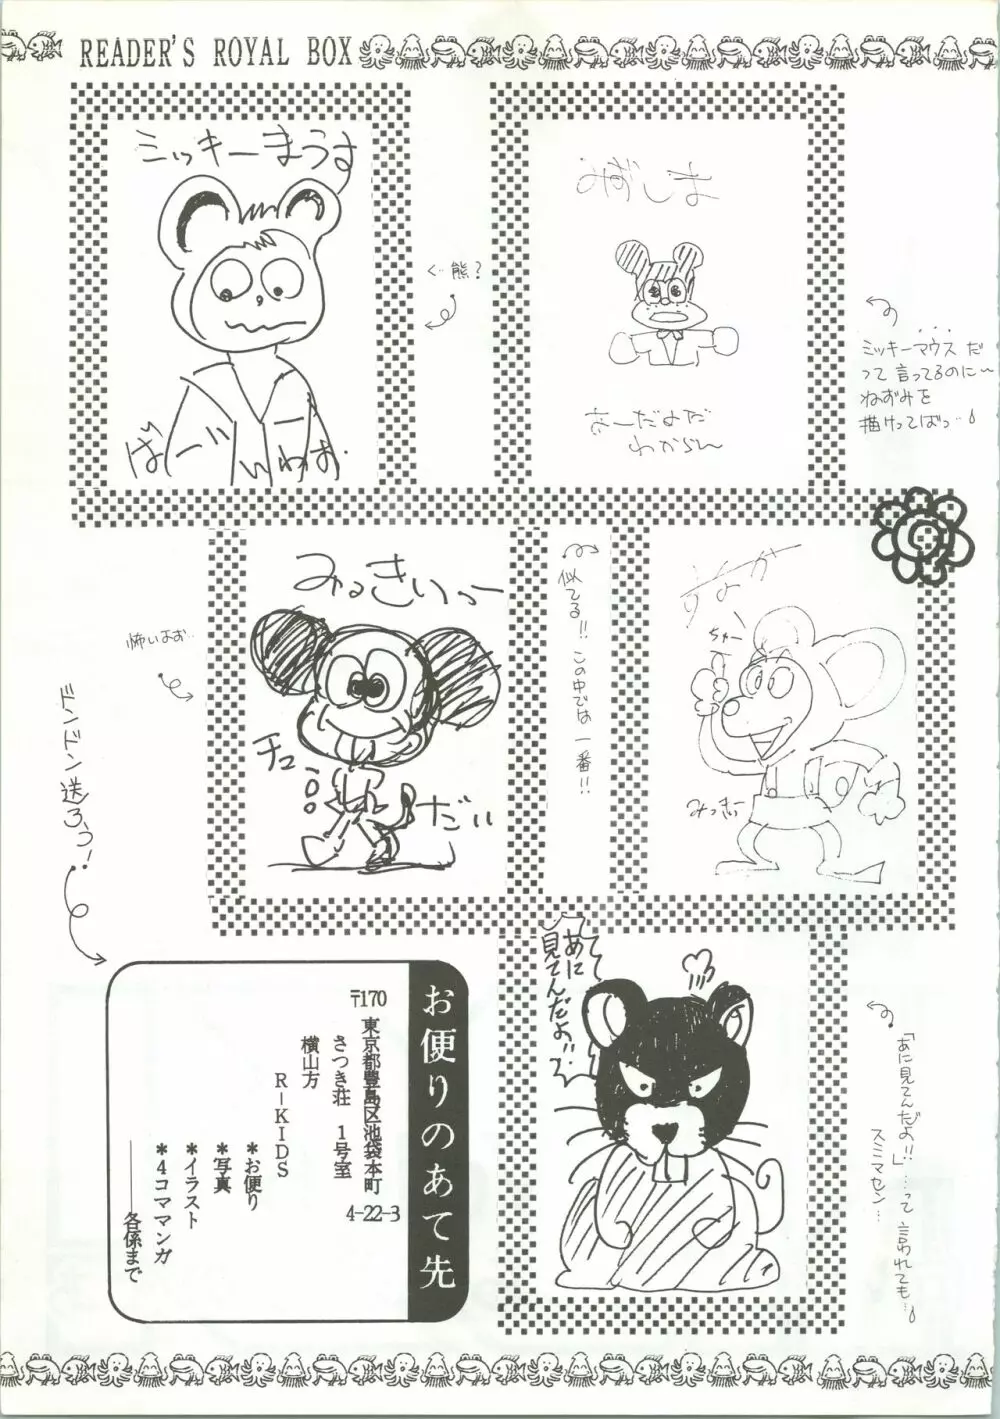 READER'S ROYAL BOX
ミッキーまうす
ばーい
く…熊?
みずしま
わからん
ミッキーマウス だ
って 言ってるのに〜
ねずみを
描けってばっ…
みっきいー
怖いよお…
チュー
だい
似てる!! この中では 一番!!
ちゃー
みっきぃー
ドンドン送ろう!
お便りのあて先
〒170
東京都豊島区池袋本町
4-22-3
さつき荘 1号室
横山方
R-KIDS
*お便り
*写真
*イラスト
*4コママンガ
各係まで
あに
見てんだよ!!
「あに見てんだよ!!」…って 言われても…
スミマセン…